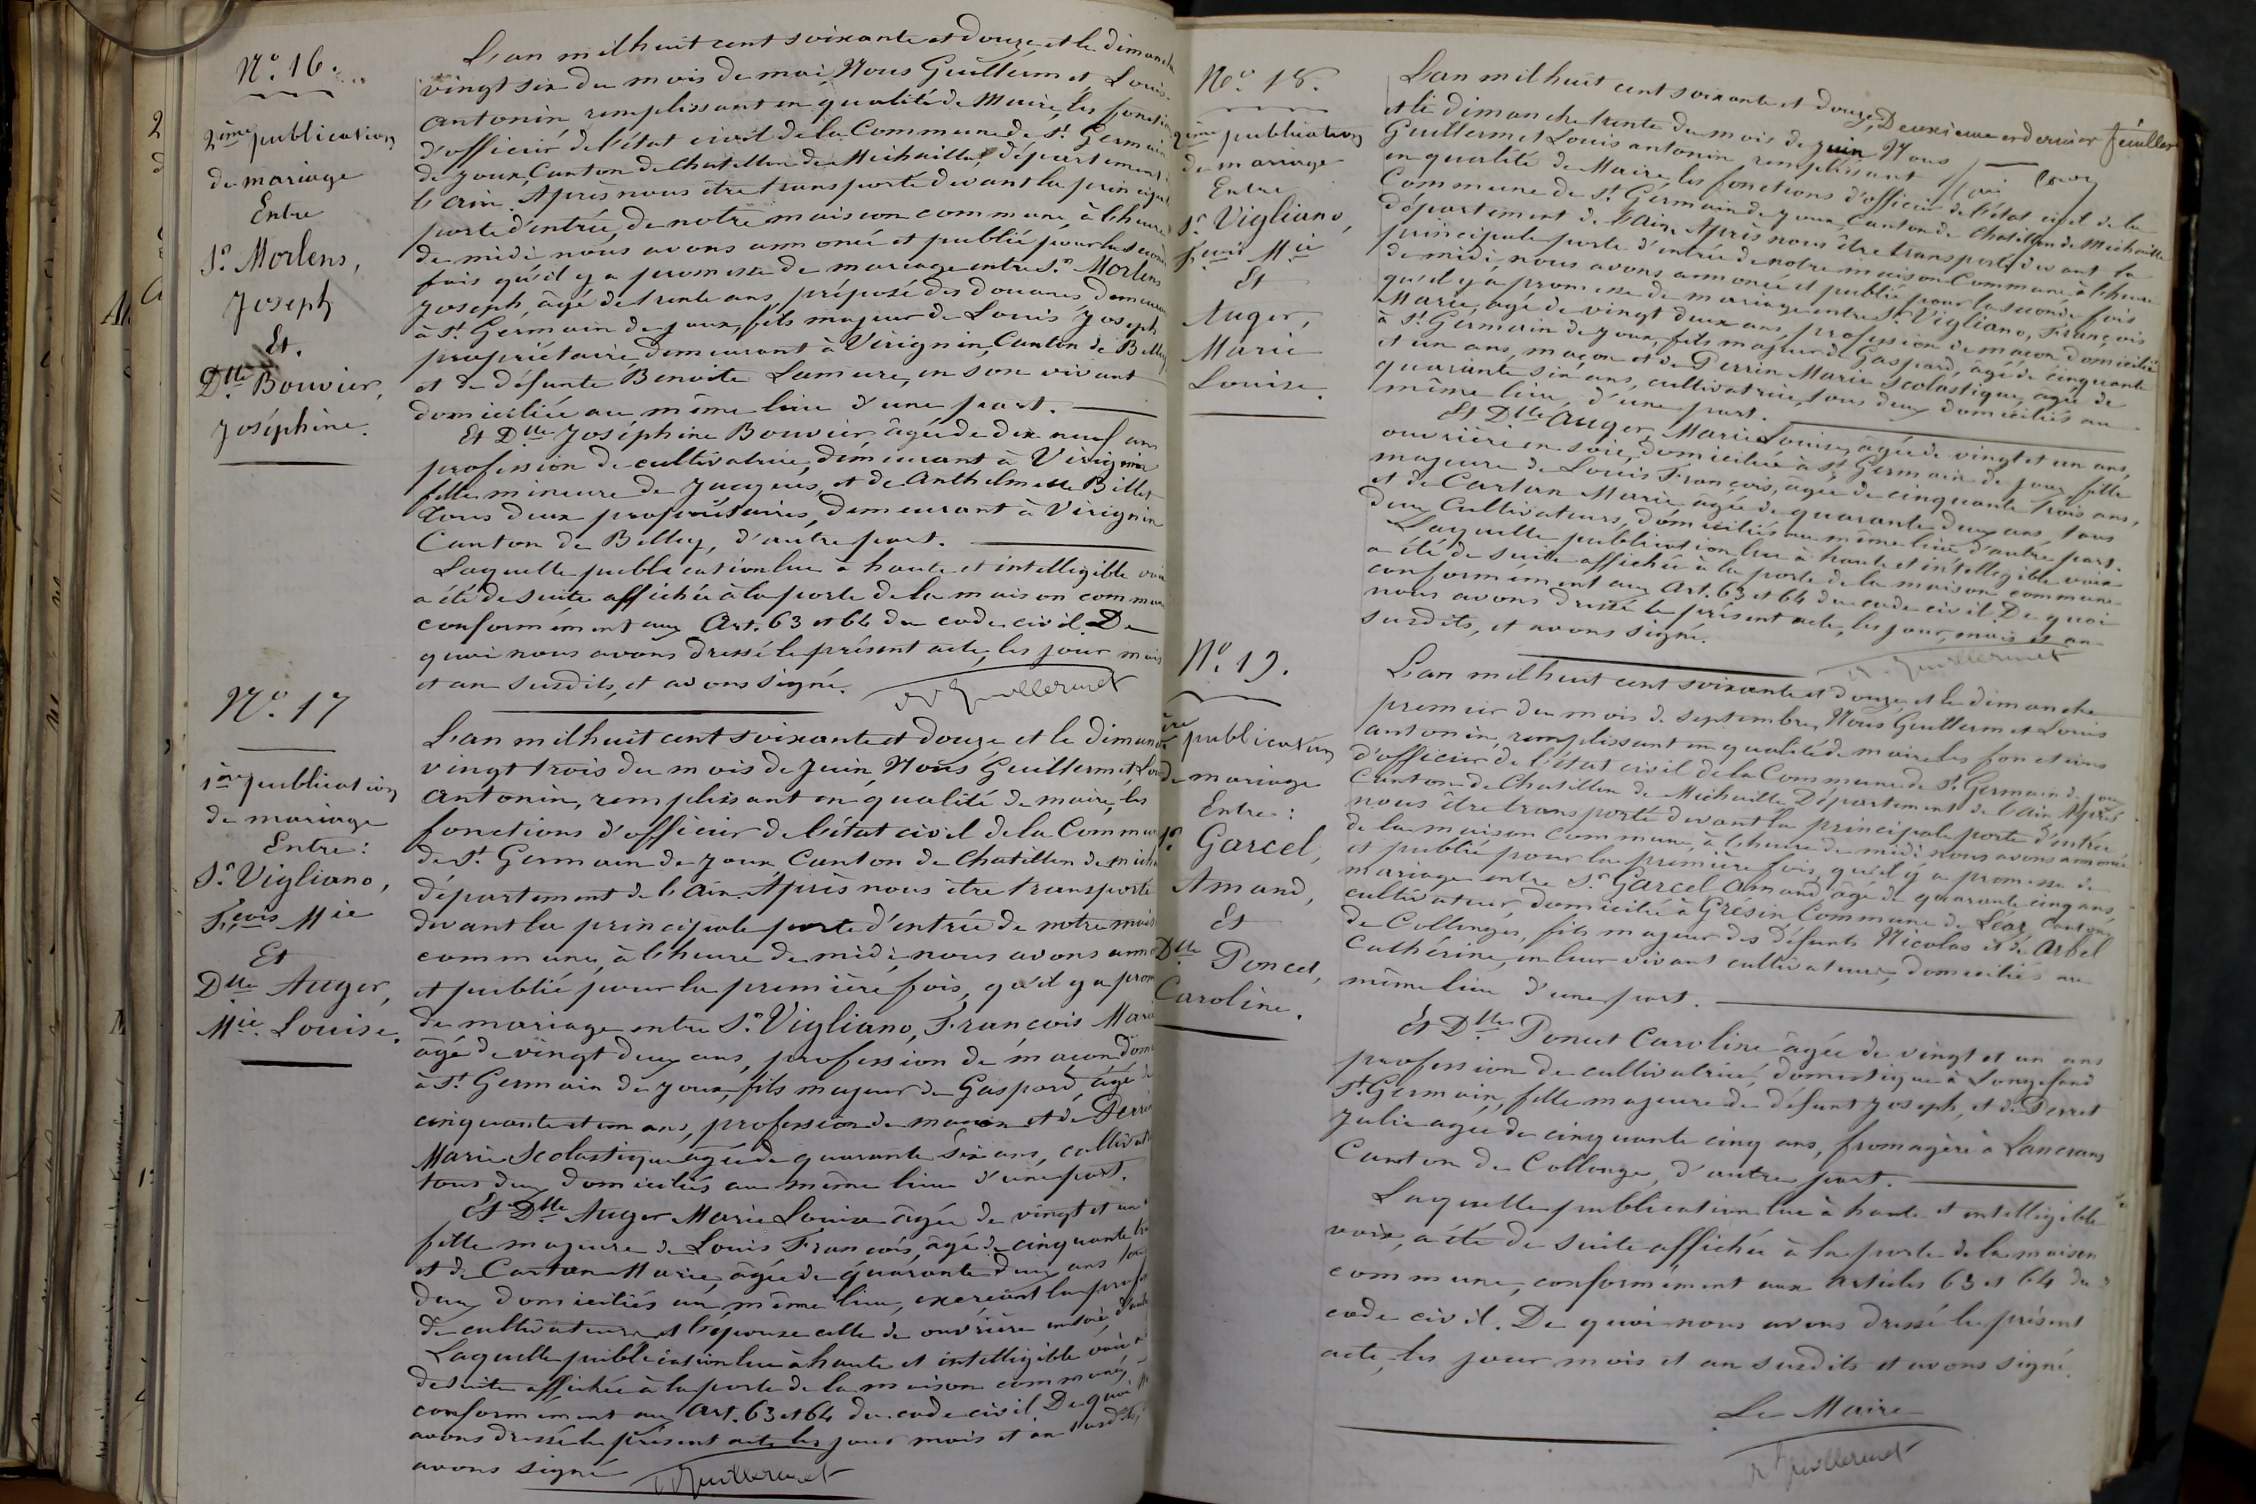 N.o 16.
2ème publication
de mariage
Entre
S.r Morlens,
Joseph
Et.
D.lle Bouvier,
Joséphine.
L'an mil huit cent soixante et douze et le dimanche
vingt six du mois de mai, Nous Guillermet, Louis
antonin remplissant en qualité de Maire, les fonctions
d'officier de l'état civil de la Commune de St. Germain
de Joux, Canton de Chatillon de Michaille, département de
l'ain. Après nous être transporté devant la principale
porte d'entrée de notre maison commune, à l'heure
de midi nous avons annoncé et publié pour la seconde
fois qu'il y a promesse de mariage entre S.r Morlens
Joseph, âgé de trente ans, préposé des douanes, demeurant
à St. Germain de joux, fils majeur de Louis Joseph
propriétaire, demeurant à Virignin, Canton de Belley
et de défunte Benoite Lameure, en son vivant
domiciliée au même lieu d'une part.
Et D.lle Joséphine Bouvier, âgée de dix neuf ans
profession de cultivatrice, démeurant à Virignin
fille mineure de Jacques, et de Anthelmette Billet
tous deux propriétaires, demeurant à Virignin
Canton de Belley, d'autre part.
Laquelle publication lue à haute et intelligible voix
a été de suite affichée à la porte de la maison commune
conformément aux Art. 63 et 64 du code civil. De
quoi nous avons dressé le présent acte, les jour mois
et an susdits, et avons signé. Guillermet
N.o 17
1ère publication
de mariage
Entre:
S.r Vigliano,
F.çois M.ie
Et
D.lle Auger,
M.ie Louise.
L'an mil huit cent soixante et douze et le dimanche
vingt trois du mois de Juin, Nous Guillermet, Louis
Antonin, remplissant en qualité de maire, les
fonctions d'officier de l'état civil de la Commune
de St. Germain de Joux, Canton de Chatillon de Mich
département de l'ain. Après nous être transporté
devant la principale porte d'entrée de notre maison
commune, à l'heure de midi, nous avons anno
et publié pour la première fois, qu'il y a prom
de mariage entre S.r Vigliano, François Marie
âgé de vingt deux ans, profession de maçon domi
à St. Germain de joux, fils majeur de Gaspard, âgé de
cinquante et un ans, profession de maçon et de Perrin
Marie Scolastique âgée de quarante six ans, cultivat
tous deux domiciliés au même lieu d'une part.
Et D.lle Auger Marie Louise âgée de vingt et un
fille majeure de Louis François, âgé de cinquante tr
et de Cartan Marie, âgée de quarante deux ans tous
deux domiciliés au même lieu, exerçant la prof
de cultivateur et l'épouse celle de ouvrière en soie, d'autre
Laquelle publication lue à haute et intelligible voix a
de suite affichée à la porte de la maison commune,
conformément aux Art. 63 et 64 du code civil. De quoi
avons dressé le présent acte les jour mois et an susdits
avons signé Guillermet
N.o 18.
2ème publication
de mariage
Entre
S.r Vigliano,
F.çois M.ie
Et
Auger,
Marie
Louise.
L'an mil huit cent soixante et douze, Deuxième et dernier feuillet
et le dimanche trente du mois de juin Nous
Guillermet Louis antonin, remplissant
en qualité de Maire, les fonctions d'officier de l'état civil de la
Commune de St. Germain de Joux, Canton de Chatillon de Michaille
département de l'ain, Après nous être transporté devant la
principale porte d'entrée de notre maison Commune, à l'heure
de midi, nous avons annoncé et publié pour la seconde fois
qu'il y a promesse de mariage entre S.r Vigliano, François
Marie, âgé de vingt deux ans, profession de maçon domicilié
à St. Germain de joux, fils majeur de Gaspard, âgé de cinquante
et un ans, maçon et de Perrin Marie Scolastique, âgée de
quarante six ans, cultivatrice, tous deux domiciliés au
même lieu, d'une part.
Et D.lle Auger, Marie Louise, âgée de vingt et un ans,
ouvrière en soie, domiciliée à St. Germain de joux, fille
majeure de Louis François, âgé de cinquante trois ans,
et de Cartan Marie âgée de quarante deux ans, tous
deux Cultivateurs, domiciliés au même lieu, d'autre part.
Laquelle publication lue à haute et intelligible voix
a été de suite affichée à la porte de la maison commune
conformément aux Art. 63 et 64 du code civil. De quoi
nous avons dressé le présent acte, les jour, mois et an
susdits, et avons signé.
Guillermet
N.o 19.
1ère publication
de mariage
Entre:
S.r Garcel,
Amand,
Et
D.lle Poncet,
Caroline.
L'an mil huit cent soixante et douze, et le dimanche
premier du mois de septembre, Nous Guillermet Louis
antonin, remplissant en qualité de maire les fonctions
d'officier de l'état civil de la Commune de St. Germain de joux
Canton de Chatillon de Michaille, Département de l'ain, Après
nous être transporté devant la principale porte d'entrée
de la maison commune, à l'heure de midi, nous avons annoncé
et publié pour la première fois, qu'il y a promesse de
mariage entre S.r Garcel Amand, âgé de quarante cinq ans,
cultivateur, domicilié à Grésin Commune de Léaz, Canton
de Collonges, fils majeur des défunts Nicolas et de Arbel
Cathérine, en leur vivant cultivateurs, domiciliés au
même lieu d'une part.
Et D.lle Poncet Caroline âgée de vingt et un ans
profession de cultivatrice, domestique à Longefand
St. Germain, fille majeure de défunt Joseph, et de Perret
Julie âgée de cinquante cinq ans, fromagère à Lancrans
Canton de Collonge, d'autre part.
Laquelle publication lue à haute et intelligible
voix, a été de suite affichée à la porte de la maison
commune, conformément aux articles 63 et 64 du
code civil. De quoi nous avons dressé le présent
acte, les jour mois et an susdits et avons signé.
Le Maire
Guillermet